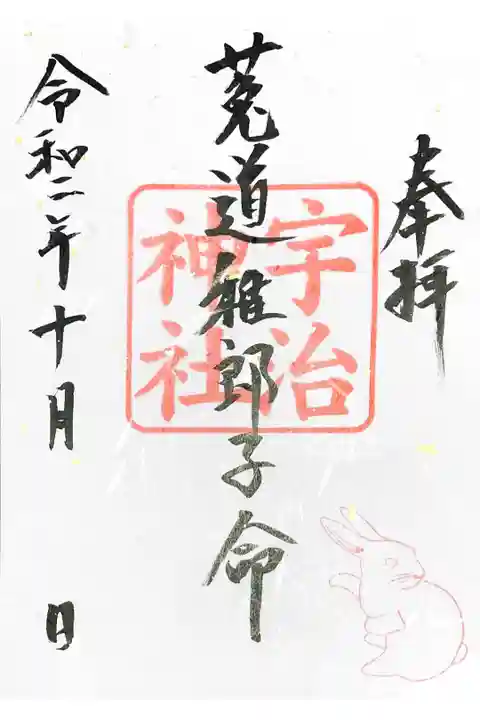 奉拝
菟道稚郎子命
宇治
神社
令和二年十月 日